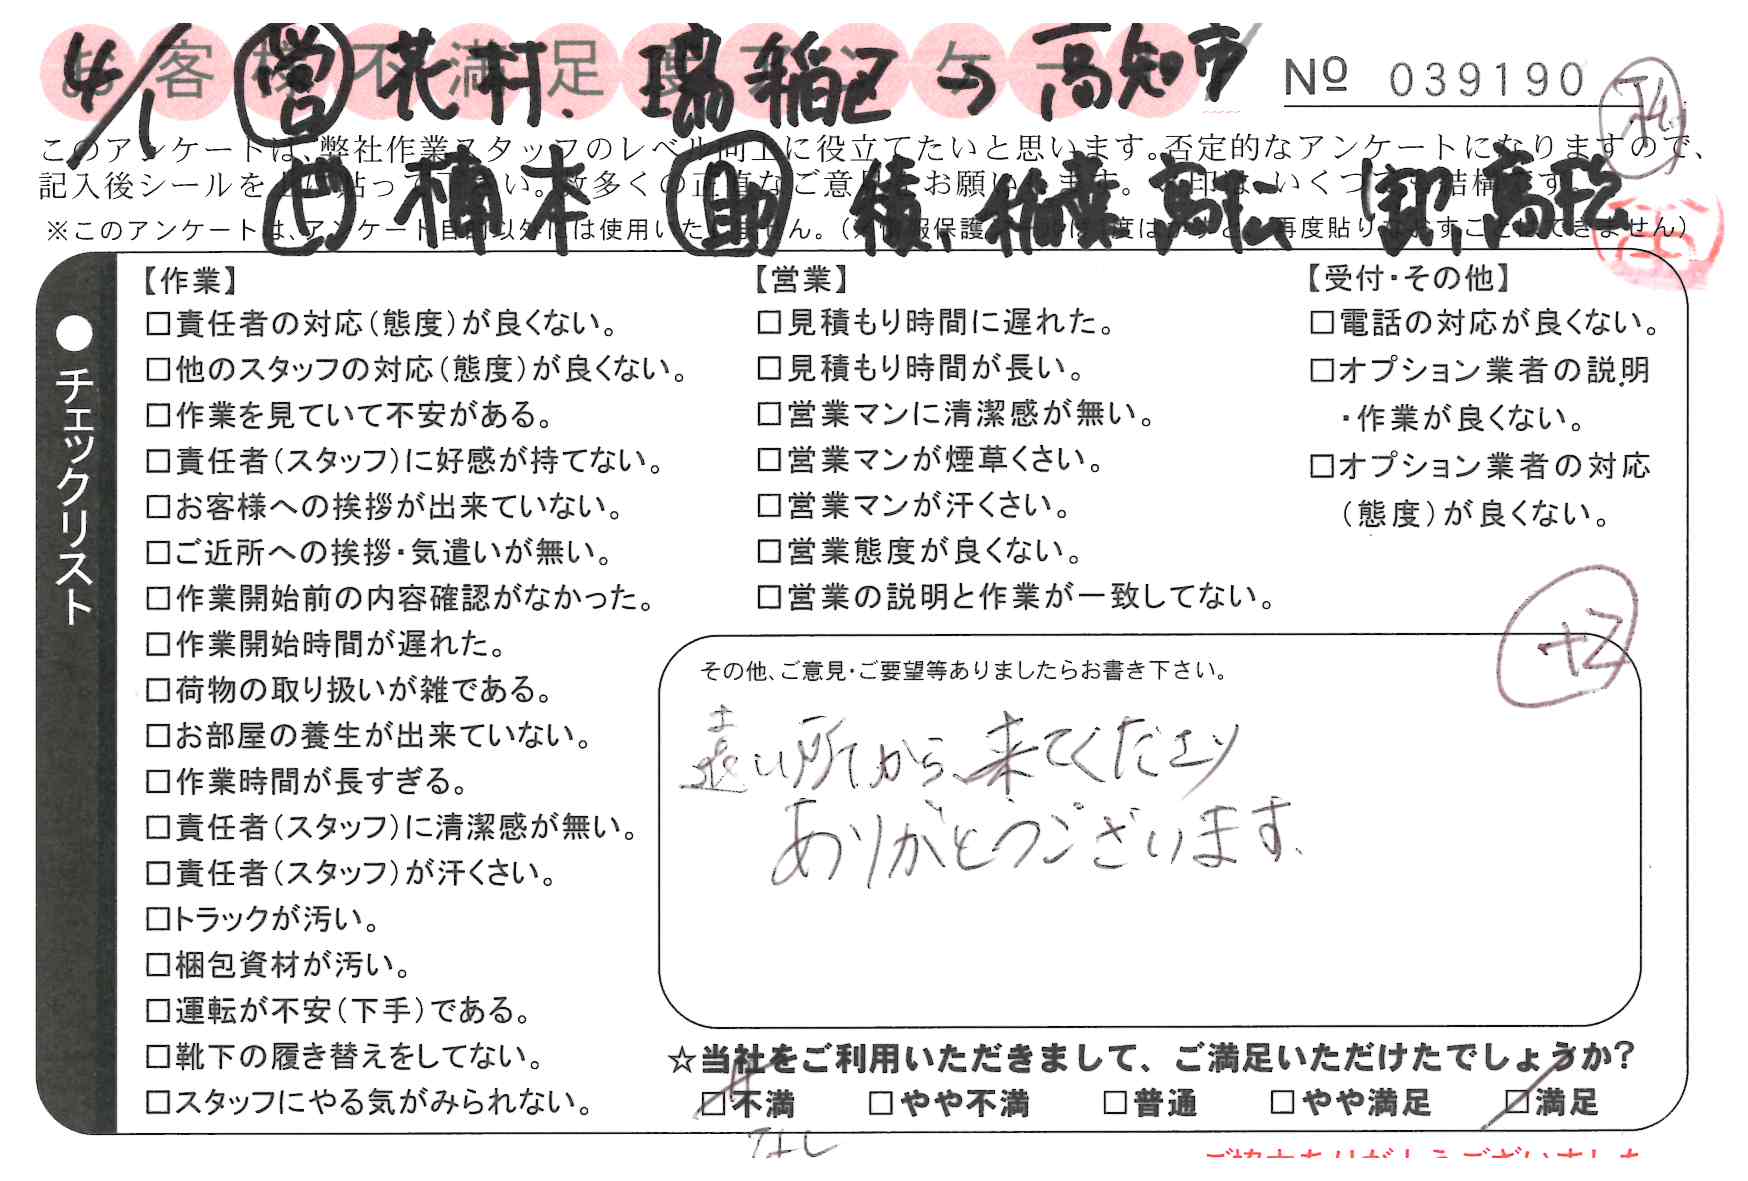 4/1 営 花村、瑞穂区→高知市
お客様不満足度アンケート
NO 039190
このアンケートは、弊社作業スタッフのレベル向上に役立てたいと思います。否定的なアンケートになりますので、
記入後シールを上に貼って下さい。数多くの正直なご意見をお願いします。
※このアンケートは、アンケート目的以外には使用いたしません。
楠本 助
●チェックリスト
【作業】
□責任者の対応（態度）が良くない。
□他のスタッフの対応（態度）が良くない。
□作業を見ていて不安がある。
□責任者（スタッフ）に好感が持てない。
□お客様への挨拶が出来ていない。
□ご近所への挨拶・気遣いが無い。
□作業開始前の内容確認がなかった。
□作業開始時間が遅れた。
□荷物の取り扱いが雑である。
□お部屋の養生が出来ていない。
□作業時間が長すぎる。
□責任者（スタッフ）に清潔感が無い。
□責任者（スタッフ）が汗くさい。
□トラックが汚い。
□梱包資材が汚い。
□運転が不安（下手）である。
□靴下の履き替えをしてない。
□スタッフにやる気がみられない。
【営業】
□見積もり時間に遅れた。
□見積もり時間が長い。
□営業マンに清潔感が無い。
□営業マンが煙草くさい。
□営業マンが汗くさい。
□営業態度が良くない。
□営業の説明と作業が一致してない。
【受付・その他】
□電話の対応が良くない。
□オプション業者の説明
・作業が良くない。
□オプション業者の対応
（態度）が良くない。
その他、ご意見・ご要望等ありましたらお書き下さい。
遠い所から、来てくださり
ありがとうございます。
☆当社をご利用いただきまして、ご満足いただけたでしょうか?
□不満 □やや不満 □普通 □やや満足 □満足
なし
ご協力ありがとうございました